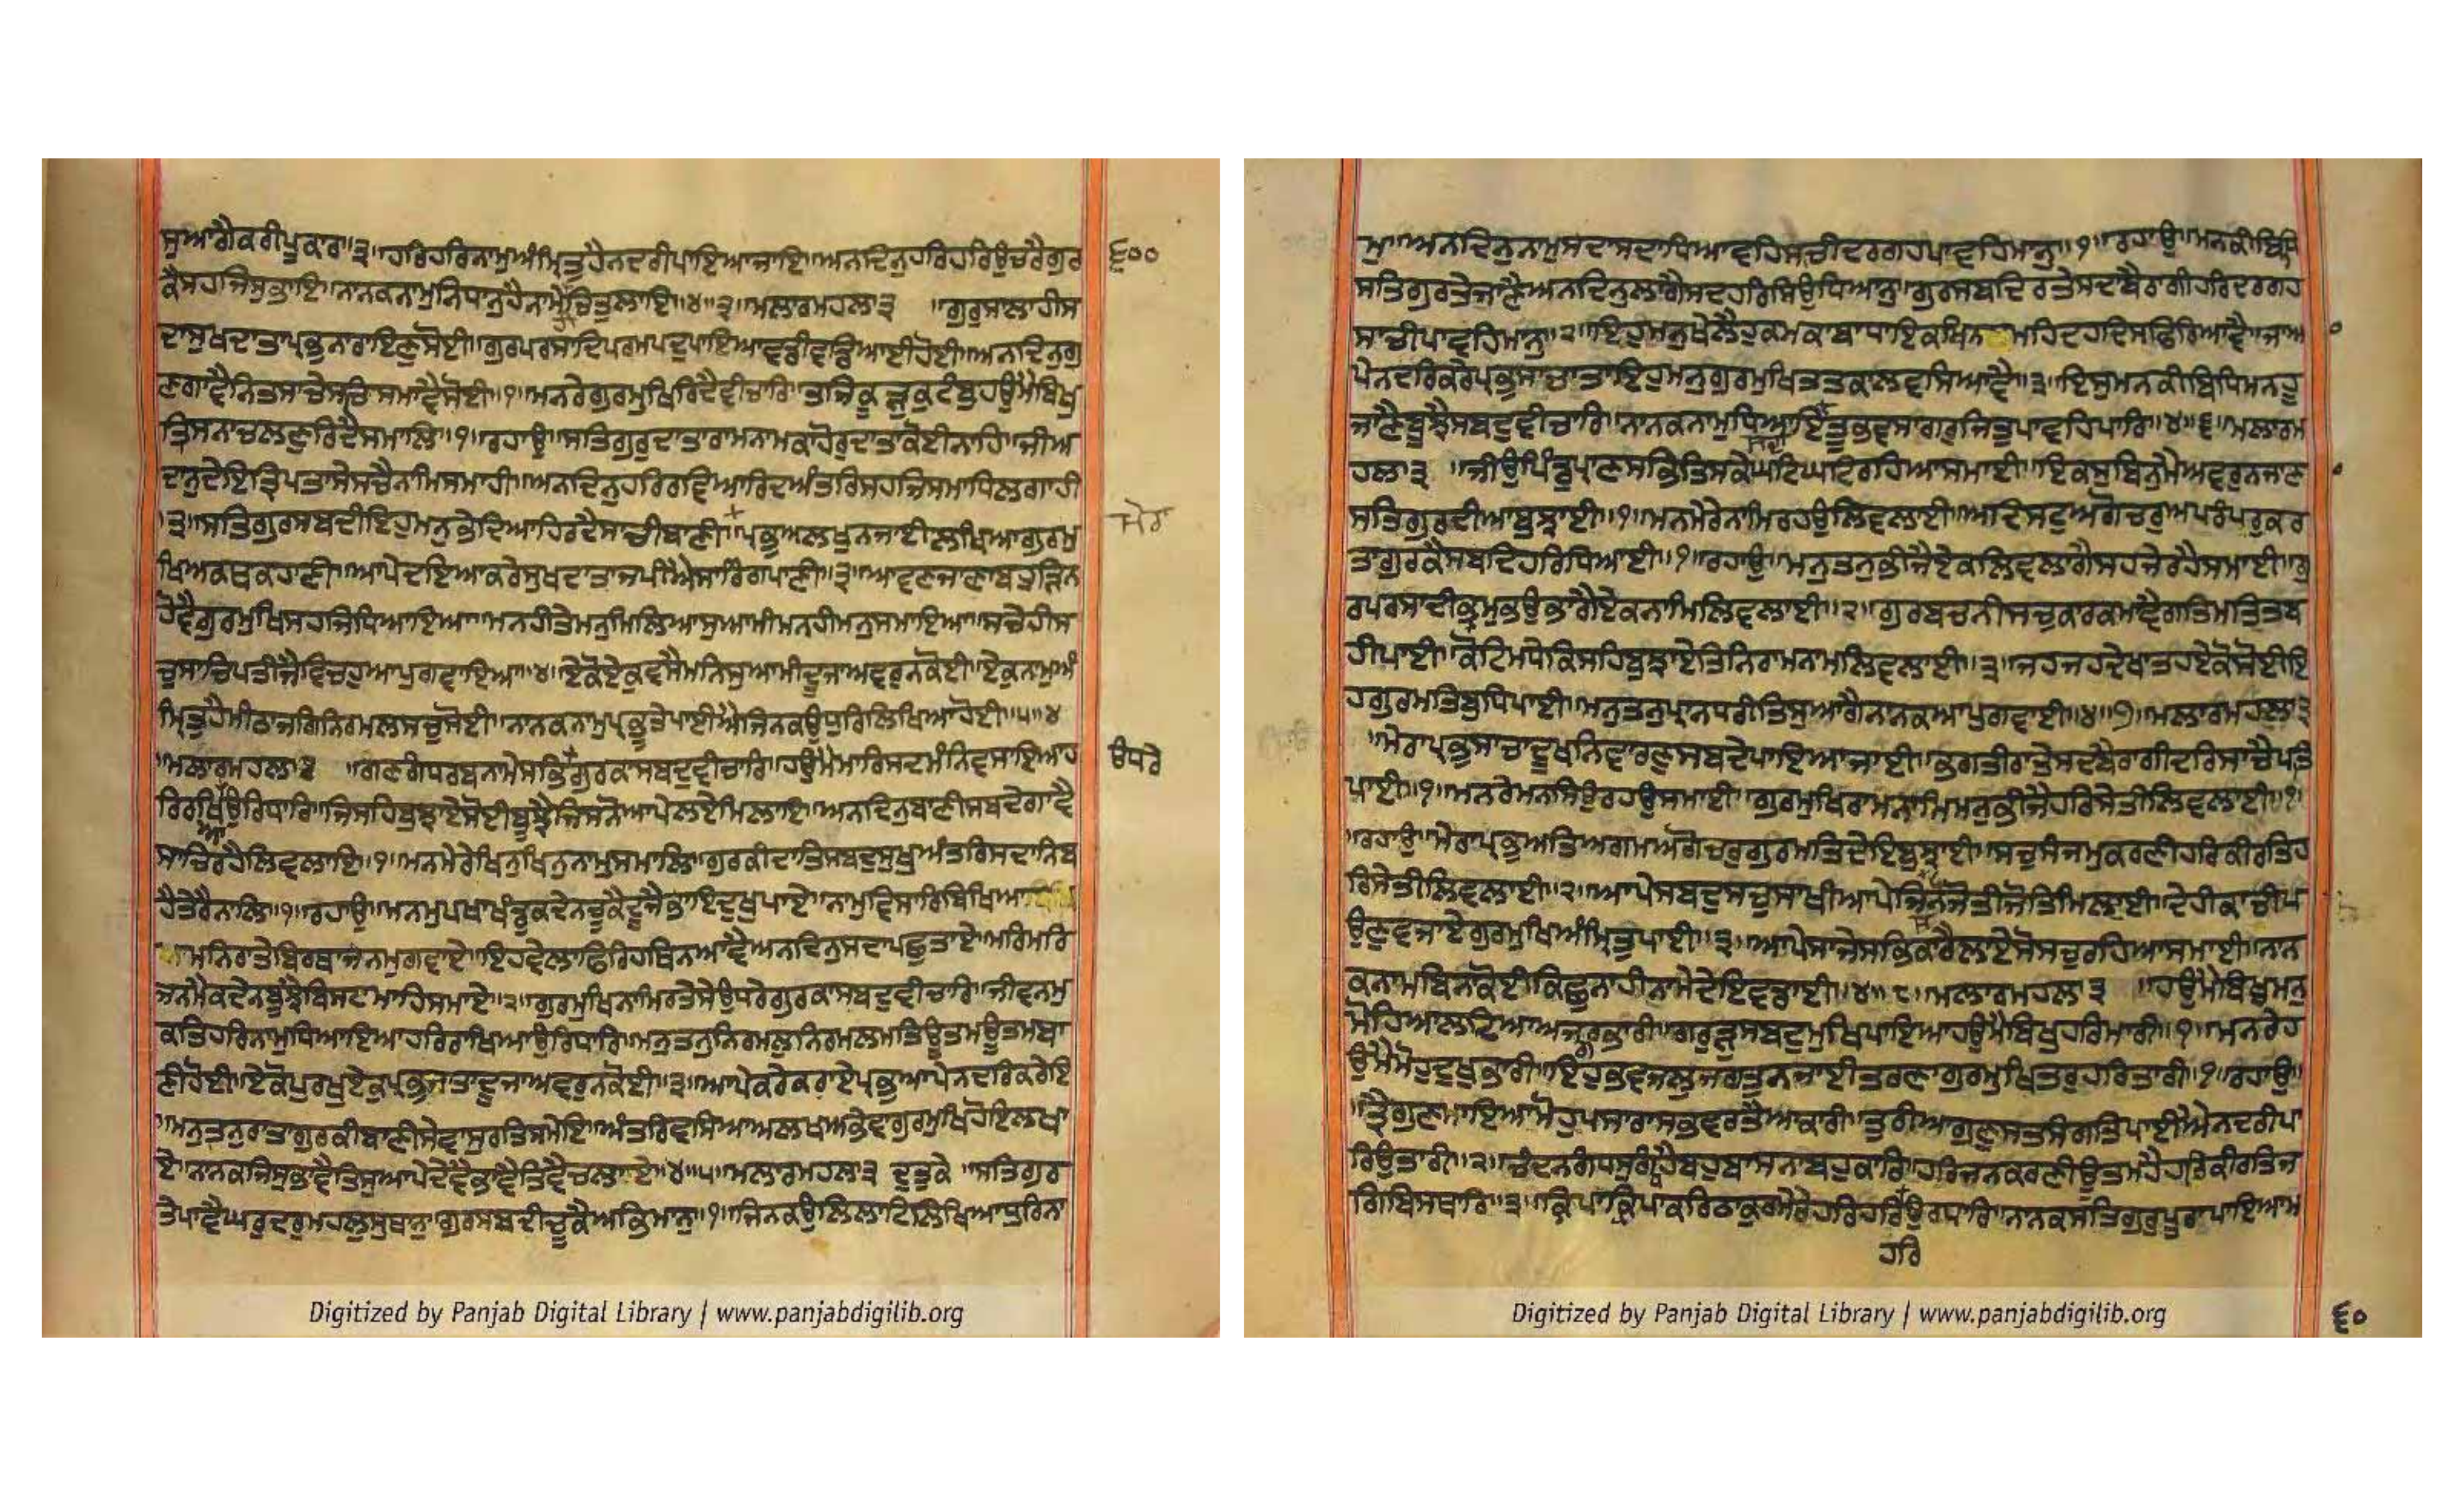 ਸੁਆਰੀਕਰੀਪੁਕਾਰਾ॥੩॥ਹਰਿਹਰਿਨਾਮੁਅੰਮ੍ਰਿਤੁਹੈਨਦਰੀਪਾਇਆਜਾਇ॥ਅਨਦਿਨੁਹਰਿਹਰਿਉਚਰੈਗੁਰ
੬੦੦
ਕੈਸਹਜਿਸੁਭਾਇ॥ਨਾਨਕਨਾਮੁਨਿਧਾਨੁਹੈਨਾਮੇਚਿਤੁਲਾਇ॥੪॥੩॥ਮਲਾਰਮਹਲਾ੩ ॥ਗੁਰੁਸਾਲਾਹੀਸ
ਦਾਸੁਖਦਾਤਾਪ੍ਰਭੁਨਾਰਾਇਣੁਸੋਈ॥ਗੁਰਪਰਸਾਦਿਪਰਮਪਦੁਪਾਇਆਵਡੀਵਡਿਆਈਹੋਈ॥ਅਨਦਿਨੁਗੁ
ਣਗਾਵੈਨਿਤਸਾਚੇਸਚਿਸਮਾਵੈਸੋਈ॥੧॥ਮਨਰੇਗੁਰਮੁਖਿਰਿਦੈਵੀਚਾਰਿ॥ਤਜਿਕੂੜੁਕੁਟੰਬੁਹਉਮੈਬਿਖੁ
ਤ੍ਰਿਸਨਾਚਲਣੁਰਿਦੈਸਮਾਲਿ॥੧॥ਰਹਾਉ॥ਸਤਿਗੁਰੁਦਾਤਾਰਾਮਨਾਮਕਾਹੋਰੁਦਾਤਾਕੋਈਨਾਹਿ॥ਜੀਅ
ਦਾਨੁਦੇਇਤ੍ਰਿਪਤਾਸੇਸਚੈਨਾਮਿਸਮਾਹੀ॥ਅਨਦਿਨੁਹਰਿਰਵਿਆਰਿਦਅੰਤਰਿਸਹਜਿਸਮਾਧਿਲਗਾਹੀ
॥੨॥ਸਤਿਗੁਰਸਬਦੀਇਹੁਮਨੁਭੇਦਿਆਹਿਰਦੈਸਾਚੀਬਾਣੀ॥ਪ੍ਰਭੁਅਲਖੁਨਜਾਈਲਖਿਆਗੁਰਮੁ
ਖਿਅਕਥਕਹਾਣੀ॥ਆਪੇਦਇਆਕਰੇਸੁਖਦਾਤਾਜਪੀਐਸਾਰਿੰਗਪਾਣੀ॥੩॥ਆਵਣਜਾਣਾਬਹੁੜਿਨ
ਹੋਵੈਗੁਰਮੁਖਿਸਹਜਿਧਿਆਇਆ॥ਮਨਹੀਤੇਮਨੁਮਿਲਿਆਸੁਆਮੀਮਨਹੀਮਨੁਸਮਾਇਆ॥ਸਾਚੇਹੀਸ
ਚੁਸਾਚਿਪਤੀਜੈਵਿਚਹੁਆਪੁਗਵਾਇਆ॥੪॥ਏਕੋਏਕੁਵਸੈਮਨਿਸੁਆਮੀਦੂਜਾਅਵਰੁਨਕੋਈ॥ਏਕੁਨਾਮੁਅੰ
ਮ੍ਰਿਤੁਹੈਮੀਠਾਜਗਿਨਿਰਮਲਸਚੁਸੋਈ॥ਨਾਨਕਨਾਮੁਪ੍ਰਭੂਤੇਪਾਈਐਜਿਨਕਉਧੁਰਿਲਿਖਿਆਹੋਈ॥੫॥੪
॥ਮਲਾਰਮਹਲਾ੩ ॥ਗਣਗੰਧਰਬਨਾਮੇਸਭਿਗੁਰਕਾਸਬਦੁਵੀਚਾਰਿ॥ਹਉਮੈਮਾਰਿਸਦਮੰਨਿਵਸਾਇਆਹ
ਉਧਰੇ
ਰਿਰਖਿਉਰਿਧਾਰਿ॥ਜਿਸਹਿਬੁਝਾਏਸੋਈਬੂਝੈਜਿਸਨੋਆਪੇਲਏਮਿਲਾਇ॥ਅਨਦਿਨੁਬਾਣੀਸਬਦੇਗਾਵੈ
ਸਾਚਿਰਹੈਲਿਵਲਾਇ॥੧॥ਮਨਮੇਰੇਖਿਨੁਖਿਨੁਨਾਮੁਸਮਾਲਿ॥ਗੁਰਕੀਦਾਤਿਸਬਦਸੁਖੁਅੰਤਰਿਸਦਾਨਿਬ
ਹੈਤੇਰੈਨਾਲਿ॥੧॥ਰਹਾਉ॥ਮਨਮੁਖਪਾਖੰਡੁਕਦੇਨਚੂਕੈਦੂਜੈਭਾਇਦੁਖੁਪਾਏ॥ਨਾਮੁਵਿਸਾਰਿਬਿਖਿਆ
ਮਨਿਰਾਤੇਬਿਰਥਾਜਨਮੁਗਵਾਏ॥ਇਹਵੇਲਾਫਿਰਿਹਥਿਨਆਵੈਅਨਦਿਨੁਸਦਾਪਛੁਤਾਏ॥ਮਰਿਮਰਿ
ਜਨਮੈਕਦੇਨਬੂਝੈਵਿਸਟਾਮਾਹਿਸਮਾਏ॥੨॥ਗੁਰਮੁਖਿਨਾਮਿਰਤੇਸੇਉਧਰੇਗੁਰਕਾਸਬਦੁਵੀਚਾਰਿ॥ਜੀਵਨਮੁ
ਕਤਿਹਰਿਨਾਮੁਧਿਆਇਆਹਰਿਰਾਖਿਆਉਰਿਧਾਰਿ॥ਮਨੁਤਨੁਨਿਰਮਲੁਨਿਰਮਲਮਤਿਊਤਮਊਤਮਬਾ
ਣੀਹੋਈ॥ਏਕੋਪੁਰਖੁਏਕੁਪ੍ਰਭੁਜਾਤਾਦੂਜਾਅਵਰੁਨਕੋਈ॥੩॥ਆਪੇਕਰੇਕਰਾਏਪ੍ਰਭੁਆਪੇਨਦਰਿਕਰੇਇ
॥ਮਨੁਤਨੁਰਾਤਾਗੁਰਕੀਬਾਣੀਸੇਵਾਸੁਰਤਿਸਮੇਇ॥ਅੰਤਰਿਵਸਿਆਅਲਖਅਭੇਵਾਗੁਰਮੁਖਿਹੋਇਲਖਾ
ਏ॥ਨਾਨਕਜਿਸੁਭਾਵੈਤਿਸੁਆਪੇਦੇਵੈਭਾਵੈਤਿਵੈਚਲਾਏ॥੪॥੫॥ਮਲਾਰਮਹਲਾ੩ ਦੁਤੁਕੇ ॥ਸਤਿਗੁਰ
ਤੇਪਾਵੈਘਰੁਦਰੁਮਹਲੁਸੁਥਾਨੁ॥ਗੁਰਸਬਦੀਚੂਕੈਅਭਿਮਾਨੁ॥੧॥ਜਿਨਕਉਲਿਲਾਟਿਲਿਖਿਆਧੁਰਿਨਾ
ਮੁ॥ਅਨਦਿਨੁਨਾਮੁਸਦਾਸਦਾਧਿਆਵਹਿਸਾਚੀਦਰਗਹਪਾਵਹਿਮਾਨੁ॥੧॥ਰਹਾਉ॥ਮਨਕੀਬਿਧਿ
ਸਤਿਗੁਰਤੇਜਾਣੈਅਨਦਿਨੁਲਾਗੈਸਦਹਰਿਸਿਉਧਿਆਨੁ॥ਗੁਰਸਬਦਿਰਤੇਸਦਾਬੈਰਾਗੀਹਰਿਦਰਗਹ
ਸਾਚੀਪਾਵਹਿਮਾਨੁ॥੨॥ਇਹੁਮਨੁਖੇਲੈਹੁਕਮਕਾਬਾਧਾਇਕਖਿਨ ਮਹਿਦਹਦਿਸਫਿਰਿਆਵੈ॥ਜਾਆ
ਪੇਨਦਰਿਕਰੇਪ੍ਰਭੁਸਾਚਾਤਾਇਹੁਮਨੁਗੁਰਮੁਖਿਤਤਕਾਲਵਸਿਆਵੈ॥੩॥ਇਸੁਮਨਕੀਬਿਧਿਮਨਹੂ
ਜਾਣੈਬੂਝੈਸਬਦੁਵੀਚਾਰਿ॥ਨਾਨਕਨਾਮੁਧਿਆਇਤੂਭਵਸਾਗਰੁਜਿਤੁਪਾਵਹਿਪਾਰਿ॥੪॥੬॥ਮਲਾਰਮ
ਹਲਾ੩ ॥ਜੀਉਪਿੰਡੁਪ੍ਰਾਣਸਭਿਤਿਸਕੇਘਟਿਘਟਿਰਹਿਆਸਮਾਈ॥ਇਕਸੁਬਿਨੁਮੈਅਵਰੁਨਜਾਣ
ਸਤਿਗੁਰਦੀਆਬੁਝਾਈ॥੧॥ਮਨਮੇਰੇਨਾਮਿਰਹਉਲਿਵਲਾਈ॥ਅਦਿਸਟੁਅਗੋਚਰੁਅਪਰੰਪਰੁਕਰ
ਤਾਗੁਰਕੈਸਬਦਿਹਰਿਧਿਆਈ॥੧॥ਰਹਾਉ॥ਮਨੁਤਨੁਭੀਜੈਏਕਲਿਵਲਾਗੈਸਹਜੇਰਹੈਸਮਾਈ॥ਗੁ
ਰਪਰਸਾਦੀਭ੍ਰਮੁਭਉਭਾਗੈਏਕਨਾਮਿਲਿਵਲਾਈ॥੨॥ਗੁਰਬਚਨੀਸਚੁਕਾਰਕਮਾਵੈਗਤਿਮਤਿਤਬ
ਹੀਪਾਈ॥ਕੋਟਿਮਧੇਕਿਸਹਿਬੁਝਾਏਤਿਨਿਰਾਮਨਾਮਲਿਵਲਾਈ॥੩॥ਜਹਜਹਦੇਖਾਤਹਏਕੋਸੋਈਇ
ਹਗੁਰਮਤਿਬੁਧਿਪਾਈ॥ਮਨੁਤਨੁਪ੍ਰਾਨਧਰੀਤਿਸੁਆਗੈਨਾਨਕਆਪੁਗਵਾਈ॥੪॥੭॥ਮਲਾਰਮਹਲਾ੩
॥ਮੇਰਾਪ੍ਰਭੁਸਾਚਾਦੂਖਨਿਵਾਰਣੁਸਬਦੇਪਾਇਆਜਾਈ॥ਭਗਤੀਰਾਤੇਸਦਬੈਰਾਗੀਦਰਿਸਾਚੈਪਤਿ
ਪਾਈ॥੧॥ਮਨਰੇਮਨਸਿਉਰਹਉਸਮਾਈ॥ਗੁਰਮੁਖਿਰਾਮਨਾਮਿਮਨੁਭੀਜੈਹਰਿਸੇਤੀਲਿਵਲਾਈ॥੧॥
॥ਰਹਾਉ॥ਮੇਰਾਪ੍ਰਭੁਅਤਿਅਗਮਅਗੋਚਰੁਗੁਰਮਤਿਦੇਇਬੁਝਾਈ॥ਸਚੁਸੰਜਮੁਕਰਣੀਹਰਿਕੀਰਤਿਹ
ਰਿਸੇਤੀਲਿਵਲਾਈ॥੨॥ਆਪੇਸਬਦੁਸਚੁਸਾਖੀਆਪੇਜਿਨੑਜੋਤੀਜੋਤਿਮਿਲਾਈ॥ਦੇਹੀਕਾਚੀਪ
ਉਣੁਵਜਾਏਗੁਰਮੁਖਿਅੰਮ੍ਰਿਤੁਪਾਈ॥੩॥ਆਪੇਸਾਜੇਸਭਕਾਰੈਲਾਏਸੋਸਚੁਰਹਿਆਸਮਾਈ॥ਨਾਨ
ਕਨਾਮਬਿਨਾਕੋਈਕਿਛੁਨਾਹੀਨਾਮੇਦੇਇਵਡਾਈ॥੪॥੮॥ਮਲਾਰਮਹਲਾ੩ ॥ਹਉਮੈਬਿਖੁਮਨੁ
ਮੋਹਿਆਲਦਿਆਅਜਗਰਭਾਰੀ॥ਗਰੁੜੁਸਬਦੁਮੁਖਿਪਾਇਆਹਉਮੈਬਿਖੁਹਰਿਮਾਰੀ॥੧॥ਮਨਰੇਹ
ਉਮੈਮੋਹੁਦੁਖੁਭਾਰੀ॥ਇਹੁਭਵਜਲੁਜਗਤੁਨਜਾਈਤਰਣਾਗੁਰਮੁਖਿਤਰੁਹਰਿਤਾਰੀ॥੧॥ਰਹਾਉ॥
॥ਤ੍ਰੈਗੁਣਮਾਇਆਮੋਹੁਪਸਾਰਾਸਭਵਰਤੈਆਕਾਰੀ॥ਤੁਰੀਆਗੁਣੁਸਤਸੰਗਤਿਪਾਈਐਨਦਰੀਪਾ
ਰਿਉਤਾਰੀ॥੨॥ਚੰਦਨਗੰਧਸੁਗੰਧਹੈਬਹੁਬਾਸਨਾਬਹਕਾਰਿ॥ਹਰਿਜਨਕਰਣੀਊਤਮਹੈਹਰਿਕੀਰਤਿਜ
ਗਿਬਿਸਥਾਰਿ॥੩॥ਕ੍ਰਿਪਾਕ੍ਰਿਪਾਕਰਿਠਾਕੁਰਮੇਰੇਹਰਿਹਰਿਉਰਧਾਰਿ॥ਨਾਨਕਸਤਿਗੁਰੁਪੂਰਾਪਾਇਆਮ
ਹਰਿ
੬੦
Digitized by Panjab Digital Library | www.panjabdigilib.org
Digitized by Panjab Digital Library | www.panjabdigilib.org